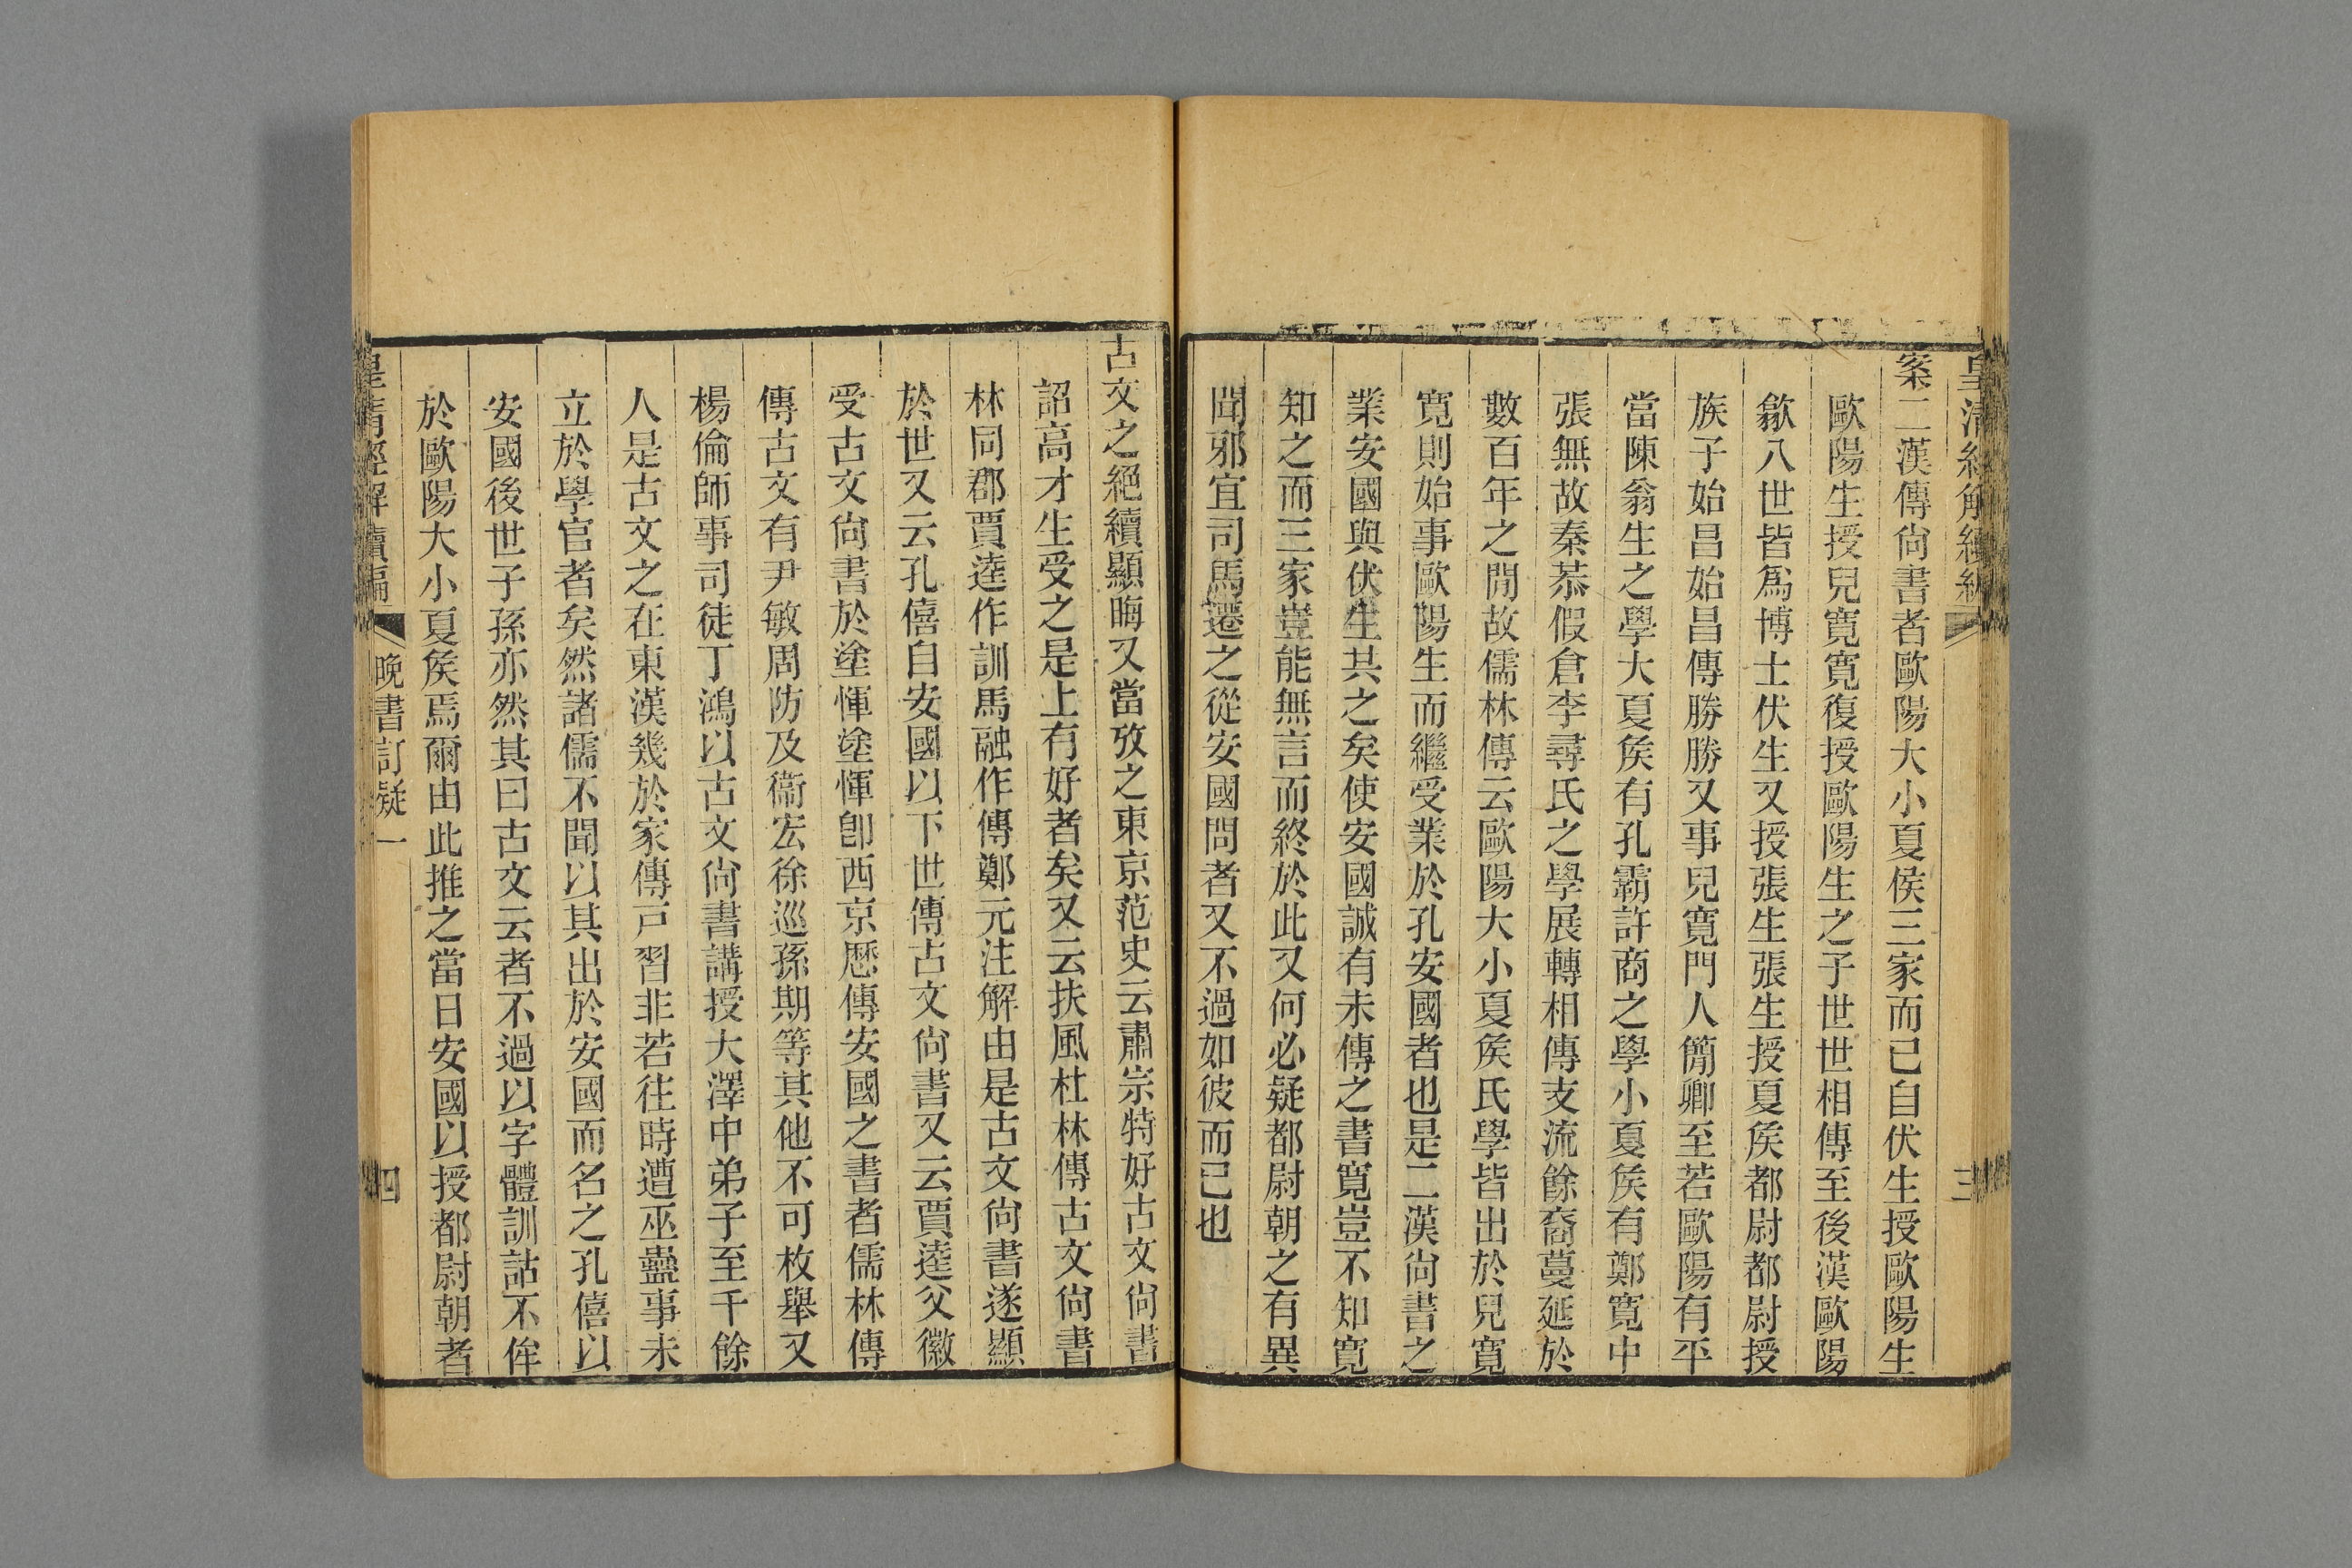 皇清經解續編
三
案二漢傳尙書者歐陽大小夏侯三家而已自伏生授歐陽生
歐陽生授兒寬寬復授歐陽生之子世世相傳至後漢歐陽
歙八世皆爲博士伏生又授張生張生授夏矦都尉都尉授
族子始昌始昌傳勝勝又事兒寬門人簡卿至若歐陽有平
當陳翁生之學大夏矦有孔霸許商之學小夏矦有鄭寬中
張無故秦恭假倉李尋氏之學展轉相傳支流餘裔蔓延於
數百年之閒故儒林傳云歐陽大小夏矦氏學皆出於兒寬
寬則始事歐陽生而繼受業於孔安國者也是二漢尙書之
業安國與伏生共之矣使安國誠有未傳之書寬豈不知寬
知之而三家豈能無言而終於此又何必疑都尉朝之有異
聞邪宜司馬遷之從安國問者又不過如彼而已也
古文之絕續顯晦又當攷之東京范史云肅宗特好古文尙書
詔高才生受之是上有好者矣又云扶風杜林傳古文尙書
林同郡賈逵作訓馬融作傳鄭元注解由是古文尙書遂顯
於世又云孔僖自安國以下世傳古文尙書又云賈逵父徽
受古文尙書於塗惲塗惲卽西京歷傳安國之書者儒林傳
傳古文有尹敏周防及衞宏徐巡孫期等其他不可枚舉又
楊倫師事司徒丁鴻以古文尙書講授大澤中弟子至千餘
人是古文之在東漢幾於家傳戸習非若往時遭巫蠱事未
立於學官者矣然諸儒不聞以其出於安國而名之孔僖以
安國後世子孫亦然其曰古文云者不過以字體訓詁不侔
於歐陽大小夏矦焉爾由此推之當日安國以授都尉朝者
皇清經解續編
晚書訂疑一
四